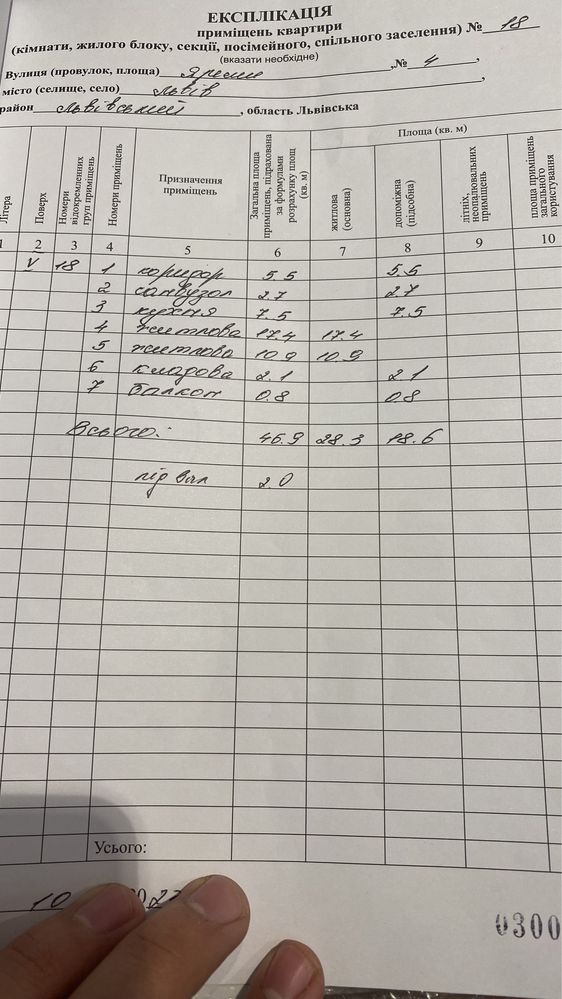 ЕКСПЛІКАЦІЯ
приміщень квартири
(кімнати, жилого блоку, секції, посімейного, спільного заселення) № 18
(вказати необхідне)
Вулиця (провулок, площа) Яреми , № 4 ,
місто (селище, село) Львів ,
район Львівський , область Львівська
Літера
Поверх
Номери відокремленних груп приміщень
Номери приміщень
Призначення приміщень
Загальна площа приміщень, підрахована за формулами розрахунку площ (кв. м)
Площа (кв. м)
житлова (основна)
допоміжна (підсобна)
літніх, неопалювальних приміщень
площа приміщень загального користування
1 2 3 4 5 6 7 8 9 10
V 18 1 коридор 5.5 5.5
2 санвузол 2.7 2.7
3 кухня 7.5 7.5
4 житлова 17.4 17.4
5 житлова 10.9 10.9
6 кладова 2.1 2.1
7 балкон 0.8 0.8
Всього: 46.9 28.3 18.6
підвал 2.0
Усього:
10
0300